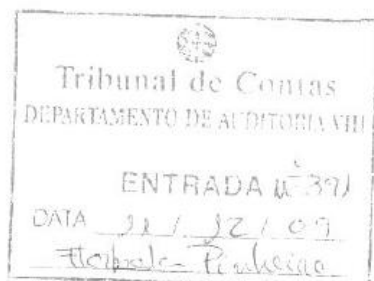 Tribunal de Contas
DEPARTAMENTO DE AUDITORIA VIII
ENTRADA Nº 391
DATA / 12 / 09
Pinheiro